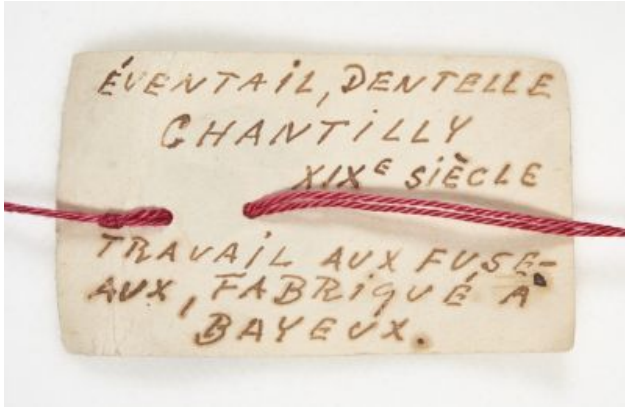 ÉVENTAiL, DENTELLE
CHANTiLLY
XIXE SiÈCLE
TRAVAiL AUX FUSE-
AUX, FABRiQUÉ À
BAYEUX.